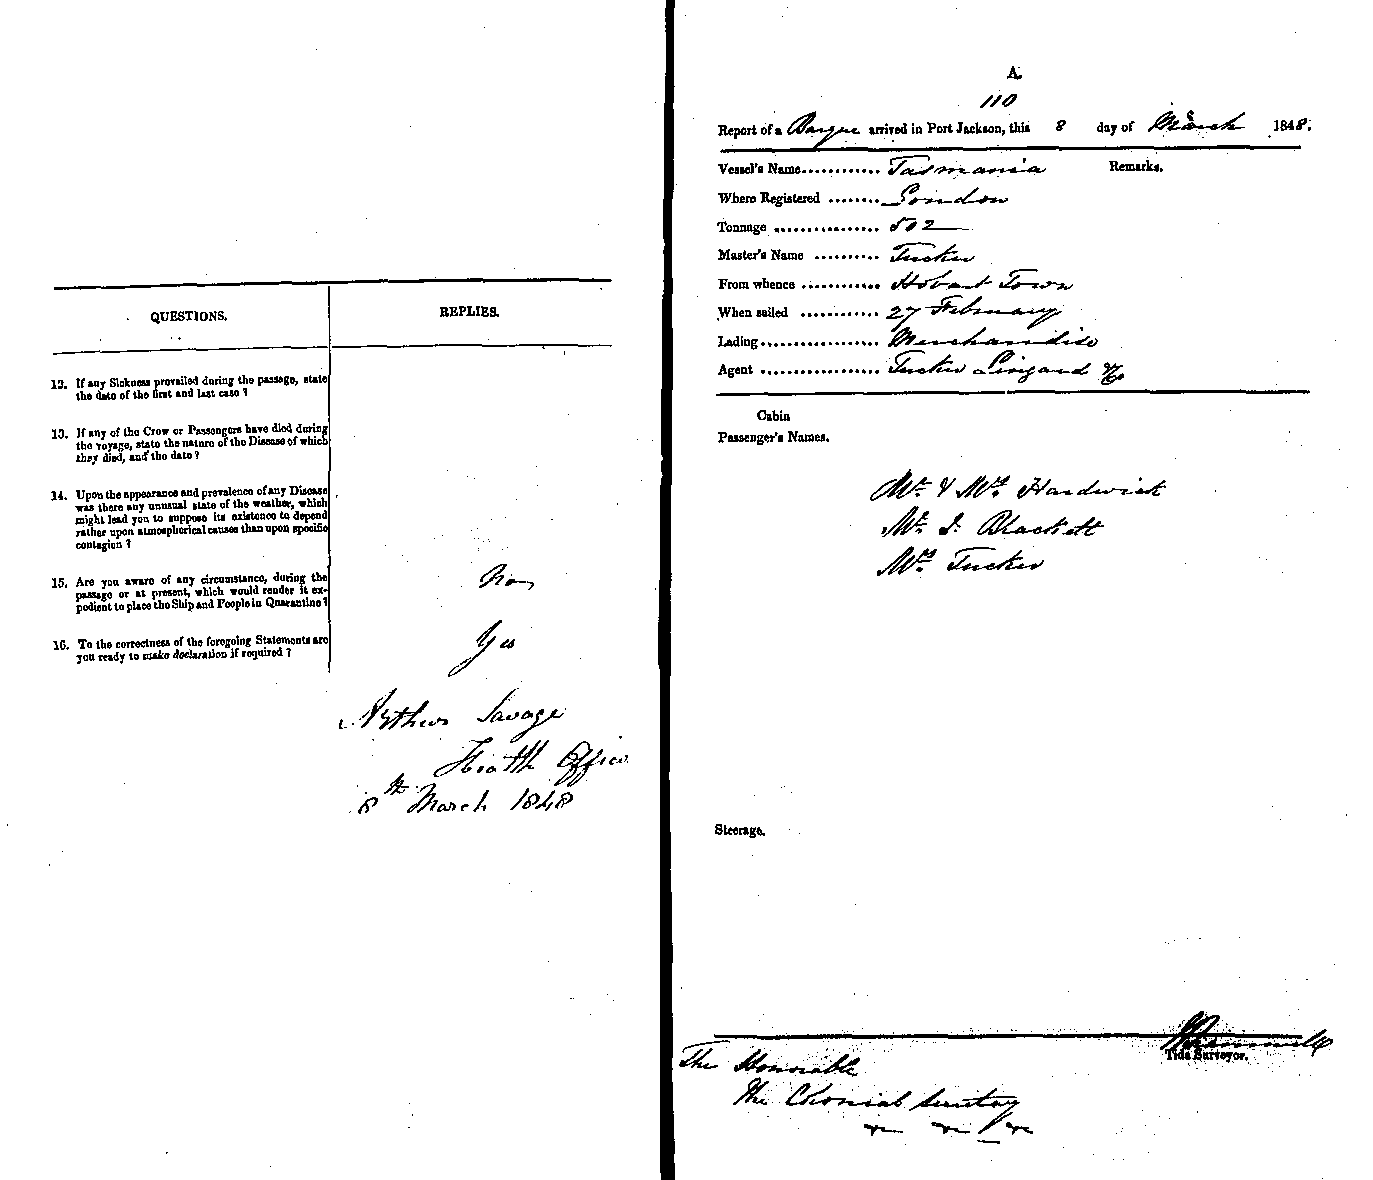 QUESTIONS.
REPLIES.
12. If any Sickness prevailed during the passage, state
the date of the first and last case ?
13. If any of the Crew or Passengers have died during
the voyage, state the nature of the Disease of which
they died, and the date ?
14. Upon the appearance and prevalence of any Disease
was there any unusual state of the weather, which
might lead you to suppose its existence to depend
rather upon atmospherical causes than upon specific
contagion ?
15. Are you aware of any circumstance, during the
passage or at present, which would render it ex-
pedient to place the Ship and People in Quarantine ?
No
16. To the correctness of the foregoing Statements are
you ready to make declaration if required ?
Yes
Arthur Savage
Health Officer
8th March 1848
A.
110
Report of a Barque arrived in Port Jackson, this 8 day of March 1848.
Vessel's Name............ Tasmania
Remarks.
Where Registered ........ London
Tonnage ................ 502
Master's Name .......... Tucker
From whence ............ Hobart Town
When sailed ............ 27 February
Lading.................. Merchandise
Agent .................. Tucker Lingard & Co
Cabin
Passenger's Names.
Mr. & Mrs. Hardwick
Mr. J. Blackett
Mrs. Tucker
Steerage.
Tide Surveyor.
The Honorable
The Colonial Secretary